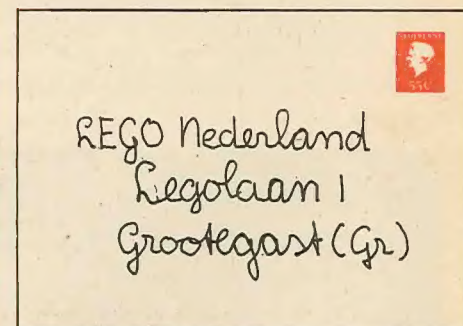 NEDERLAND
55c
LEGO Nederland
Legolaan 1
Grootegast (Gr)